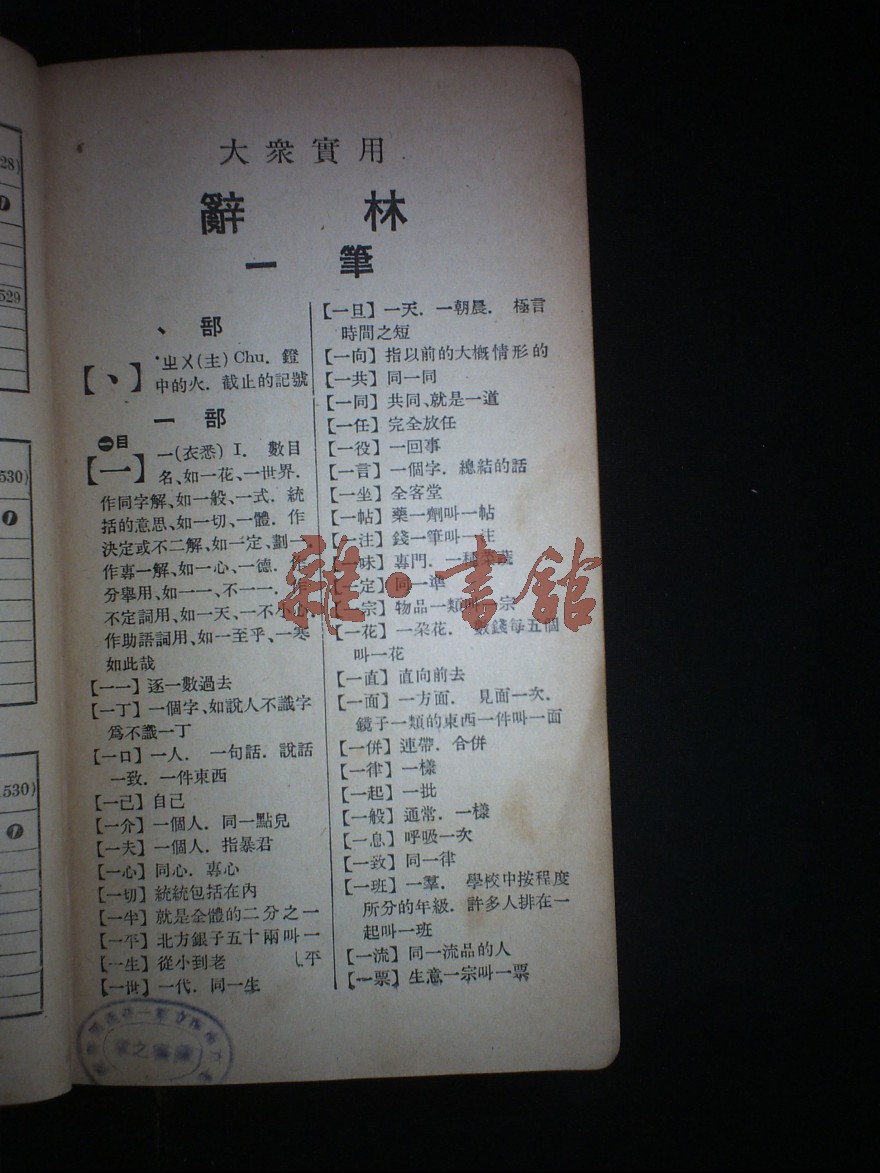 大衆實用
辭林
一筆
丶部
【丶】 ˙ㄓㄨ(主) Chu. 鐙
中的火. 截止的記號
一部
㊀目
【一】 一(衣悉) I. 數目
名、如一花、一世界.
作同字解、如一般、一式. 統
括的意思、如一切、一體. 作
決定或不二解、如一定、劃一.
作專一解、如一心、一德. 作
分舉用、如一一、不一一. 作
不定詞用、如一天、一不小心.
作助語詞用、如一至乎、一寒
如此哉
【一一】逐一數過去
【一丁】一個字、如說人不識字
爲不識一丁
【一口】一人. 一句話. 說話
一致. 一件東西
【一己】自己
【一介】一個人. 同一點兒
【一夫】一個人. 指暴君
【一心】同心. 專心
【一切】統統包括在內
【一半】就是全體的二分之一
【一平】北方銀子五十兩叫一
【一生】從小到老 ㇏平
【一世】一代. 同一生
【一旦】一天. 一朝晨. 極言
時間之短
【一向】指以前的大概情形的
【一共】同一同
【一同】共同、就是一道
【一任】完全放任
【一役】一回事
【一言】一個字. 總結的話
【一坐】全客堂
【一帖】藥一劑叫一帖
【一注】錢一筆叫一注
【一味】專門. 一種菜蔬
【一定】同一準
【一宗】物品一類叫一宗
【一花】一朶花. 數錢每五個
叫一花
【一直】直向前去
【一面】一方面. 見面一次.
鏡子一類的東西一件叫一面
【一併】連帶. 合併
【一律】一樣
【一起】一批
【一般】通常. 一樣
【一息】呼吸一次
【一致】同一律
【一班】一羣. 學校中按程度
所分的年級. 許多人排在一
起叫一班
【一流】同一流品的人
【一票】生意一宗叫一票
雜·書館
28)
529
530)
530)